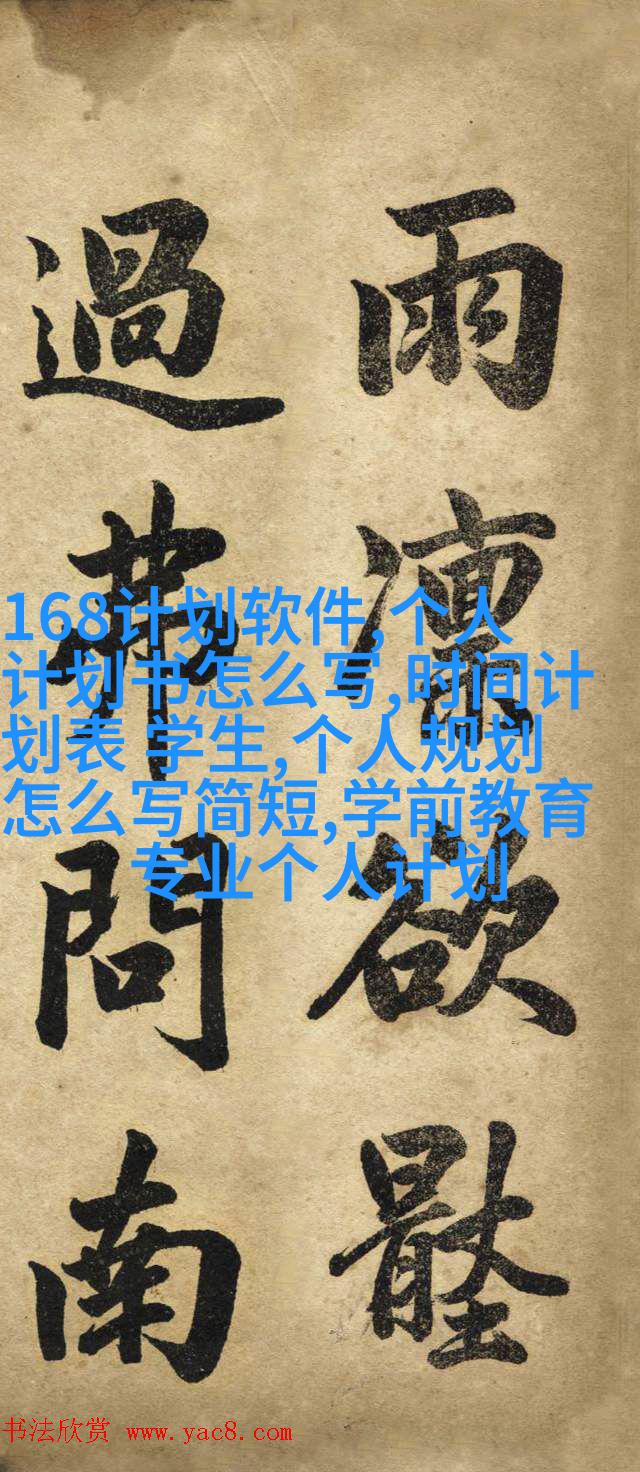 雨凛欲
過弗問南
168计划软件,个人
计划书怎么写,时间计
划表 学生,个人规划
怎么写简短,学前教育
专业个人计划
书法欣赏 www.yac8.com